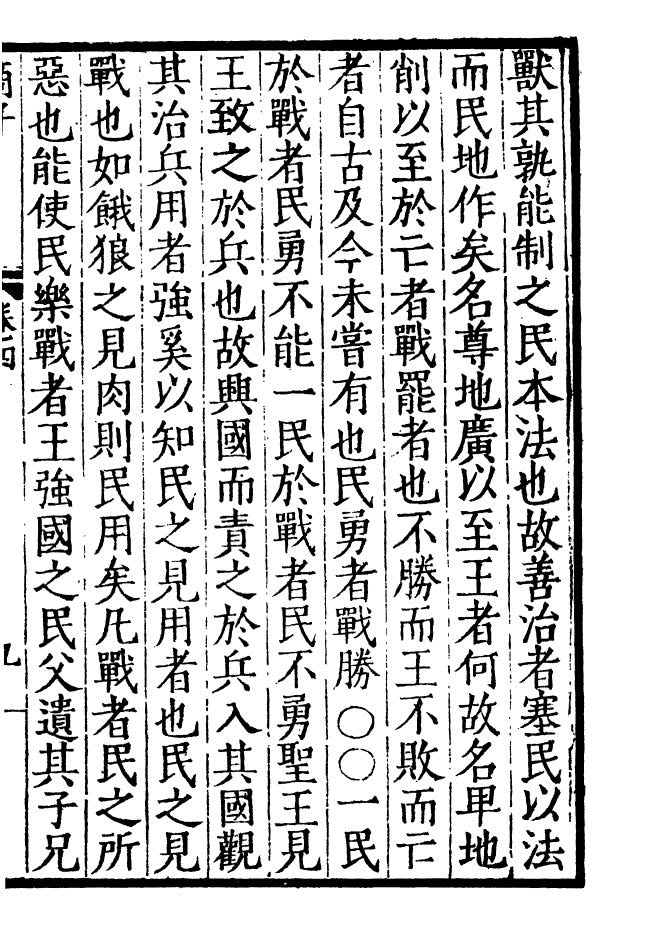 獸其孰能制之民本法也故善治者塞民以法
而民地作矣名尊地廣以至王者何故名卑地
削以至於亡者戰罷者也不勝而王不敗而亡
者自古及今未嘗有也民勇者戰勝〇〇一民
於戰者民勇不能一民於戰者民不勇聖王見
王致之於兵也故興國而責之於兵入其國觀
其治兵用者強奚以知民之見用者也民之見
戰也如餓狼之見肉則民用矣凡戰者民之所
惡也能使民樂戰者王強國之民父遺其子兄
商子 卷四 九